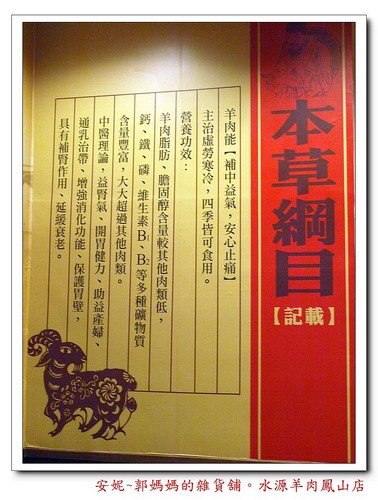 本草綱目
【記載】
羊肉能【補中益氣，安心止痛】
主治虛勞寒冷，四季皆可食用。
營養功效：
羊肉脂肪、膽固醇含量較其他肉類低，
鈣、鐵、磷、維生素B1、B2等多種礦物質
含量豐富，大大超過其他肉類。
中醫理論，益腎氣、開胃健力、助益產婦、
通乳治帶、增強消化功能、保護胃壁，
具有補腎作用、延緩衰老。
安妮~郭媽媽的雜貨舖。水源羊肉鳳山店